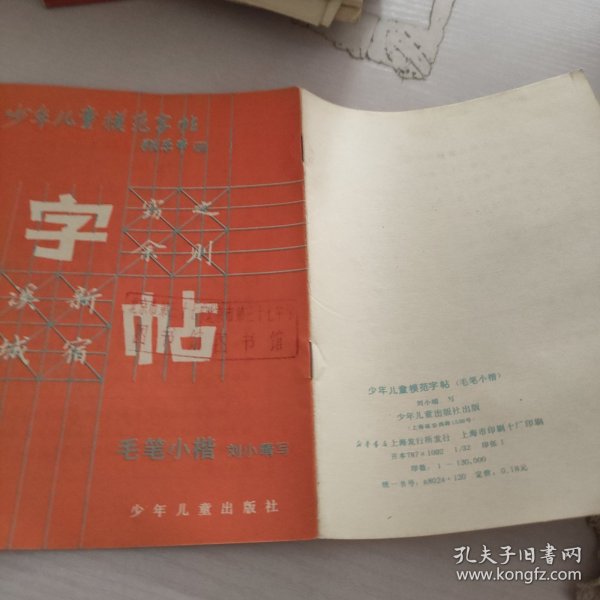 少年儿童模范字帖
字
帖
窈 之
余 则
溪 新
城 宿
图书馆
毛笔小楷 刘小晴写
少年儿童出版社
少年儿童模范字帖（毛笔小楷）
刘小晴 写
少年儿童出版社出版
新华书店上海发行所发行 上海市印刷十厂印刷
开本787×1092 1/32 印张1
印数：1—130,000
统一书号：R8024·120 定价：0.18元
孔夫子旧书网
www.kongfz.com